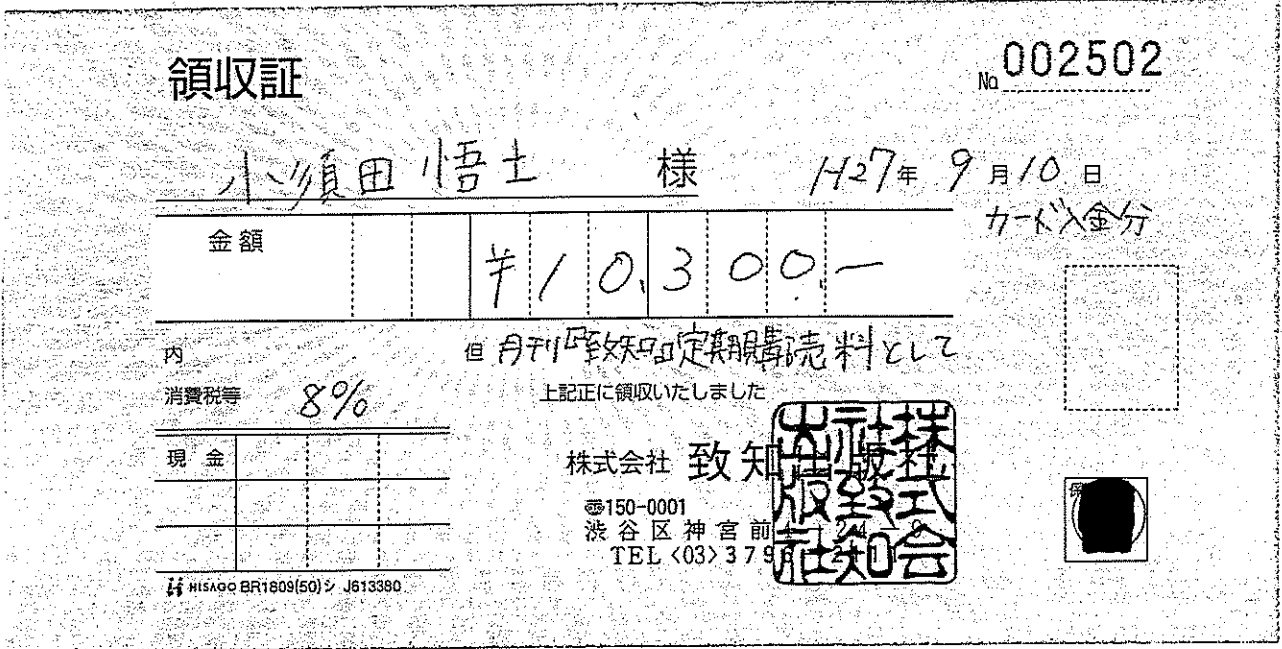 領収証
No 002502
小須田 悟士 様
H27年 9月10日
カード入金分
金額 ¥10,300.-
内
但 月刊『致知』定期購読料として
消費税等 8%
上記正に領収いたしました
現金
株式会社 致知出版社
〒150-0001
渋谷区神宮前
TEL<03>379
株式会社致知出版社
係
HISAGO BR1809(50)シ J613380